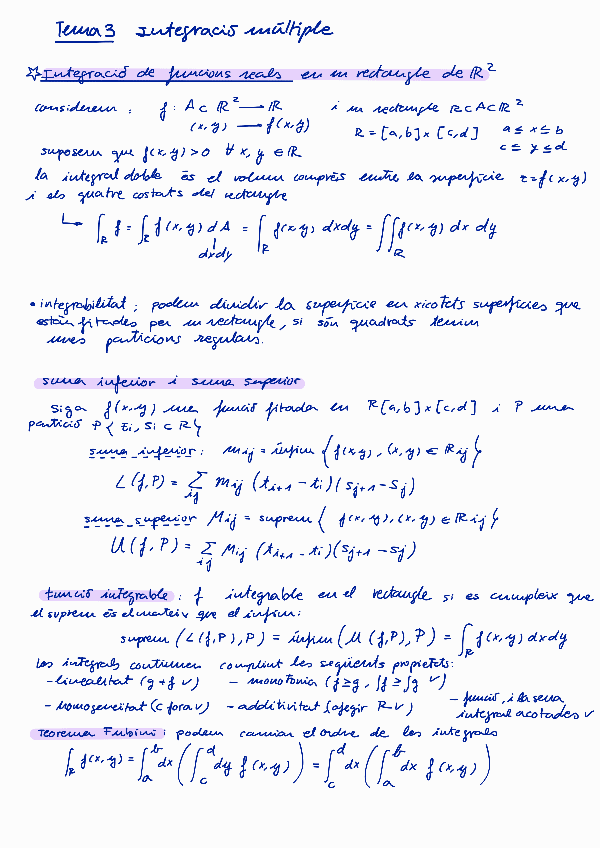 Tema 3 Integració múltiple
☆ Integració de funcions reals en un rectangle de ℝ²
considerem : f : A ⊂ ℝ² → ℝ i un rectangle R ⊂ A ⊂ ℝ²
(x, y) → f(x, y) R = [a, b] x [c, d] a ≤ x ≤ b
c ≤ y ≤ d
suposem que f(x, y) > 0 ∀ x, y ∈ ℝ
la integral doble és el volum comprès entre la superfície z = f(x, y)
i els quatre costats del rectangle
↳ ∫_R f = ∫_R f(x, y) dA = ∫_R f(x, y) dxdy = ∬_R f(x, y) dx dy
dxdy
• integrabilitat ; podem dividir la superfície en xicotets superfícies que
están fitades per un rectangle, si són quadrats tenim
unes particions regulars.
suma inferior i suma superior
Siga f(x, y) una funció fitada en R [a, b] x [c, d] i P una
partició P { ti, si ⊂ R }
suma inferior : mij = ínfim { f(x, y), (x, y) ∈ Rij }
L(f, P) = Σ_ij mij (t_i+1 - ti)(s_j+1 - sj)
suma superior Mij = suprem { f(x, y), (x, y) ∈ Rij }
U(f, P) = Σ_ij Mij (t_i+1 - ti)(s_j+1 - sj)
funció integrable : f integrable en el rectangle si es cumpleix que
el suprem és el mateix que el ínfim:
suprem (L(f, P), P) = ínfim (U(f, P), P) = ∫_R f(x, y) dxdy
Les integrals continuen complint les següents propietats:
- linealitat (g + f ✓) - monotonia (f ≥ g, ∫f ≥ ∫g ✓)
- homogeneïtat (c fora ✓) - additivitat (afegir R ✓) - funció, i la seua
integral acotades ✓
Teorema Fubini : podem canviar el ordre de les integrals
∫_R f(x, y) = ∫_a^b dx ( ∫_c^d dy f(x, y) ) = ∫_c^d dx ( ∫_a^b dx f(x, y) )